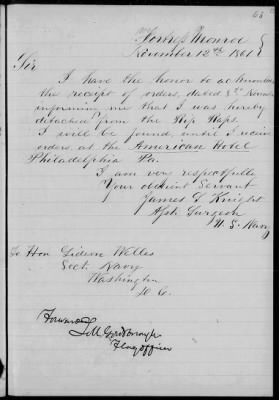 63
Fortress Monroe
November 12th 1861
Sir
I have the honor to acknowledge
the receipt of orders, dated 8th November
informing me that I was hereby
detached from the Rip Raps.
I will be found, until I receive
orders, at the American Hotel
Philadelphia Pa.
I am very respectfully
Your obedient Servant
James D. Knight
Asst. Surgeon
U. S. Navy
To Hon Gideon Welles
Sect. Navy
Washington
D. C.
Forwarded
L M Goldsborough
Flag Officer